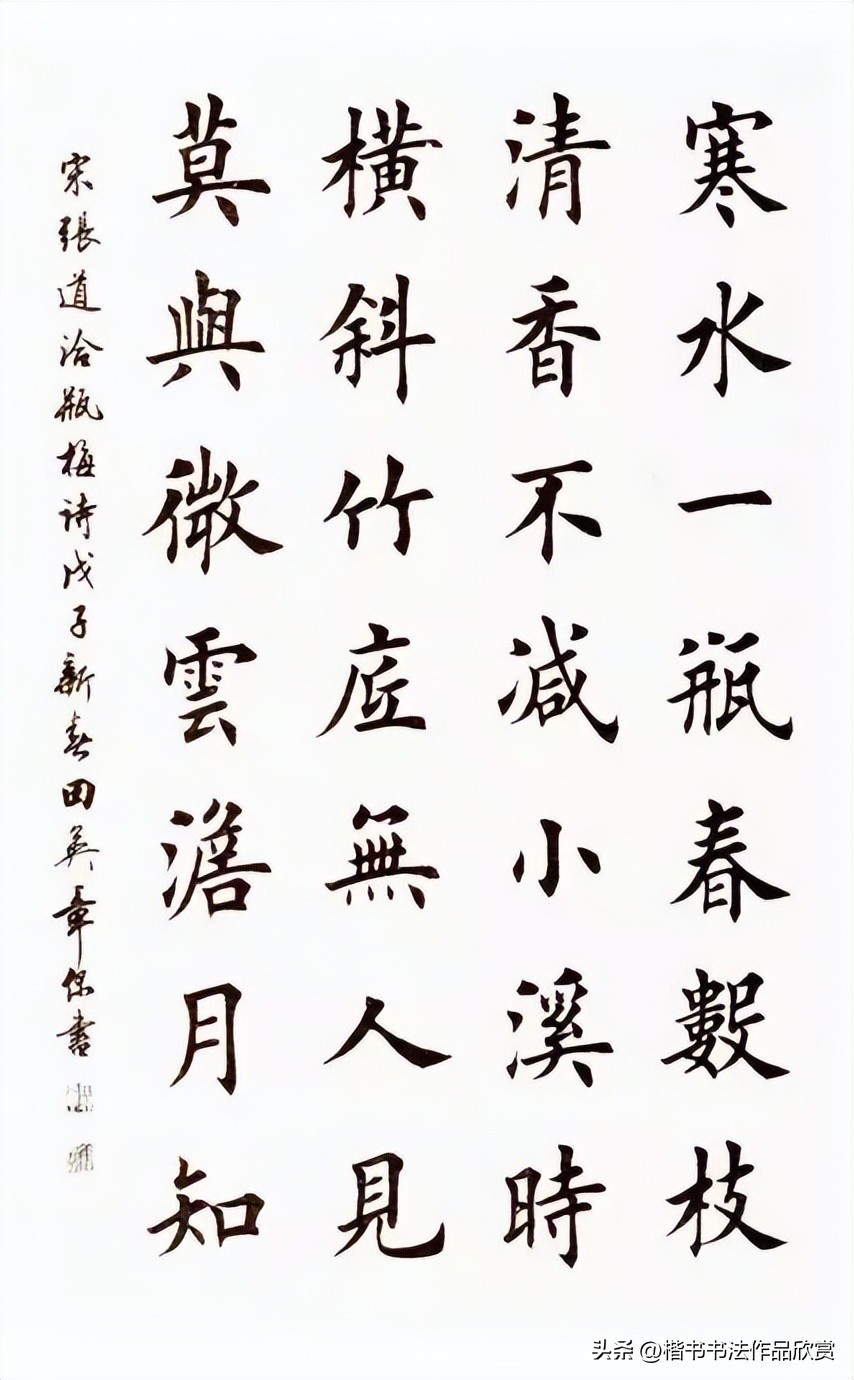 寒水一瓶春數枝
清香不減小溪時
橫斜竹底無人見
莫與微雲澹月知
宋張道洽瓶梅詩戊子新春田英章保書
头条 @楷书书法作品欣赏